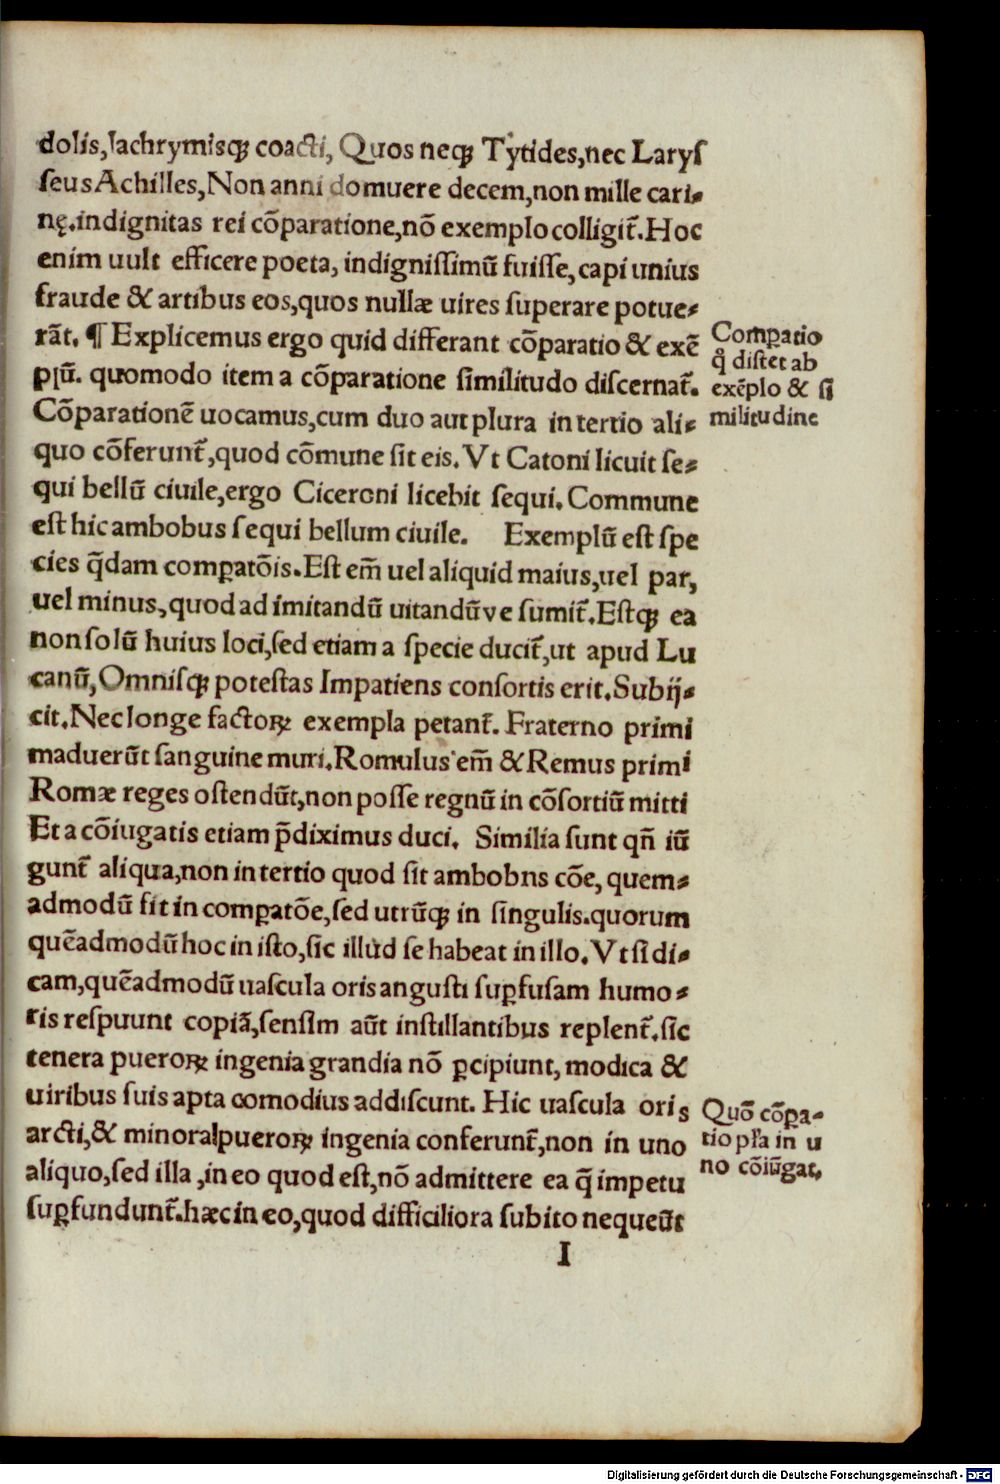 dolis,lachrymisqꝫ coacti, Quos neqꝫ Tytides,nec Laryſ
ſeus Achilles,Non anni domuere decem,non mille cari⸗
nę.indignitas rei cōparatione,nō exemplo colligit̄.Hoc
enim uult efficere poeta, indigniſſimū fuiſſe,capi unius
fraude & artibus eos,quos nullæ uires ſuperare potue⸗
rāt. ¶ Explicemus ergo quid differant cōparatio & exē
plū. quomodo item a cōparatione ſimilitudo diſcernat̄.
Cōparationē uocamus,cum duo aut plura in tertio ali⸗
quo cōferunt̄,quod cōmune ſit eis.Vt Catoni licuit ſe⸗
qui bellū ciuile,ergo Ciceroni licebit ſequi.Commune
eſt hic ambobus ſequi bellum ciuile. Exemplū eſt ſpe
cies q̄dam comꝑatōis.Eſt em̄ uel aliquid maius,uel par,
uel minus,quod ad imitandū uitandūve ſumit̄.Eſtqꝫ ea
non ſolū huius loci,ſed etiam a ſpecie ducit̄,ut apud Lu
canū,Omniſqꝫ poteſtas Impatiens conſortis erit.Subij⸗
cit.Nec longe factoꝝ exempla petant̄. Fraterno primi
maduerūt ſanguine muri.Romulus em̄ & Remus primi
Romæ reges oſtendūt,non poſſe regnū in cōſortiū mitti
Et a cōiugatis etiam p̄diximus duci. Similia ſunt qn̄ iū
gunt̄ aliqua,non in tertio quod ſit ambobns cōe, quem⸗
admodū fit in comꝑatōe,ſed utrūqꝫ in ſingulis.quorum
quēadmodū hoc in iſto,ſic illud ſe habeat in illo.Vt ſi di⸗
cam,quēadmodū uaſcula oris anguſti ſuꝑfuſam humo⸗
ris reſpuunt copiā,ſenſim aūt inſtillantibus replent̄.ſic
tenera pueroꝝ ingenia grandia nō ꝑcipiunt, modica &
uiribus ſuis apta comodius addiſcunt. Hic uaſcula oris
arcti,& minora pueroꝝ ingenia conferunt̄,non in uno
aliquo,ſed illa ,in eo quod eſt,nō admittere ea q̄ impetu
ſuꝑfundunt̄.hæc in eo,quod difficiliora ſubito nequeūt
I
Comꝑatio
q̊ diſtet ab
exēplo & ſi
militudine
Quō cōꝑa⸗
tio pl̄a in u
no cōiūgat.